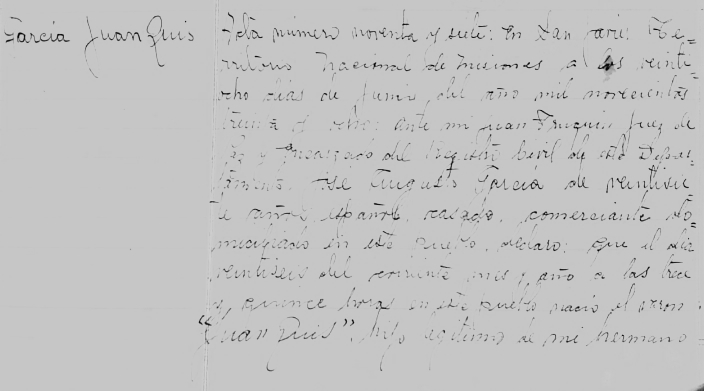 García Juan Luis
Acta número noventa y siete: En San José: Te=
rritorio Nacional de Misiones a los veinti=
ocho días de Junio del año mil novecientos
treinta y ocho: ante mi Juan Juez de
Paz y Encargado del Registro Civil de este Depar=
tamento. José Augusto García de veintisie=
te años, español, casado, comerciante do=
miciliado en este pueblo, declaro: que el día
veintiseis del corriente mes y año a las trece
y quince horas en este pueblo nació el varon
"Juan Luis", hijo legítimo de mi hermano